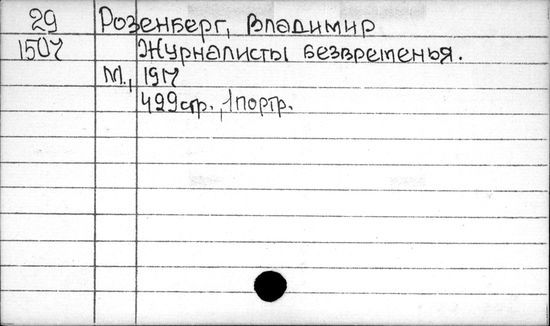 29 Розенберг, Владимир
1507 Журналисты безвременья.
М., 1917
499 стр., 1 портр.